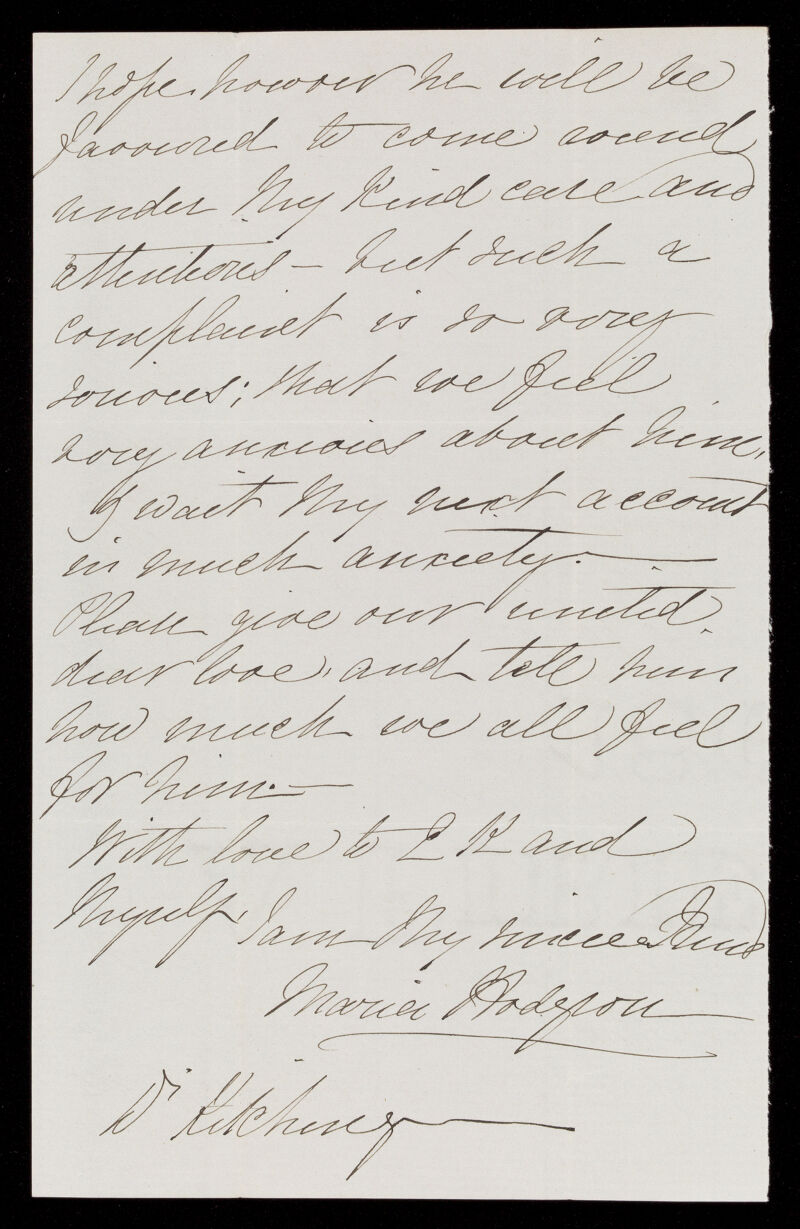 I hope however he will be
favoured to come round
under thy kind care and
attentions – but such a
complaint is so very
serious; that we feel
very anxious about him,
I wait thy next account
in much anxiety. —
Please give our united
dear love, and tell him
how much we all feel
for him. —
With love to E K and
thyself, I am thy sincere Friend
Maria Hodgson
Dr Kitching